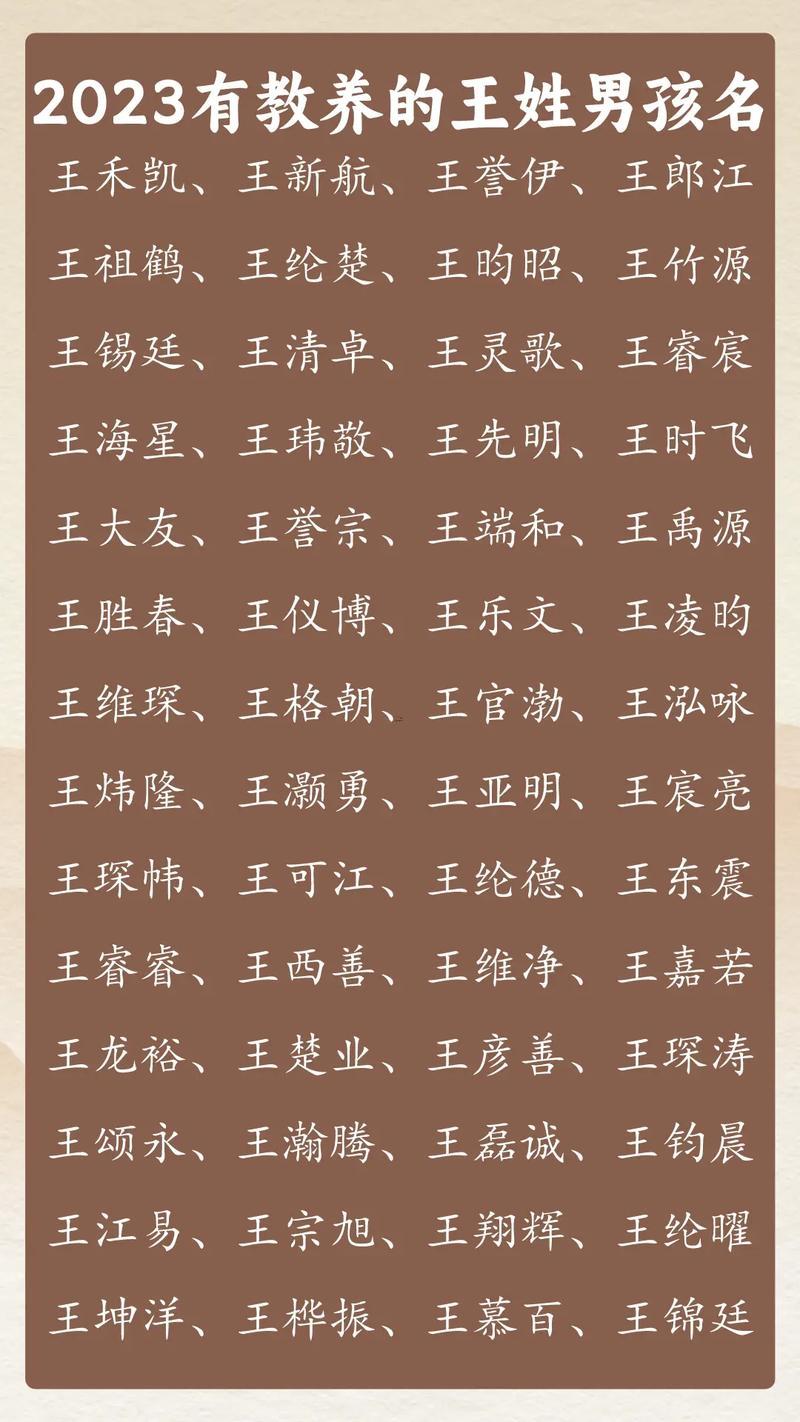 2023有教养的王姓男孩名
王禾凯、王新航、王誉伊、王郎江
王祖鹤、王纶楚、王昀昭、王竹源
王锡廷、王清卓、王灵歌、王睿宸
王海星、王玮敬、王先明、王时飞
王大友、王誉宗、王端和、王禹源
王胜春、王仪博、王乐文、王凌昀
王维琛、王格朝、王官渤、王泓咏
王炜隆、王灏勇、王亚明、王宸亮
王琛帏、王可江、王纶德、王东震
王睿睿、王西善、王维净、王嘉若
王龙裕、王楚业、王彦善、王琛涛
王颂永、王瀚腾、王磊诚、王钧晨
王江易、王宗旭、王翔辉、王纶曜
王坤洋、王桦振、王慕百、王锦廷